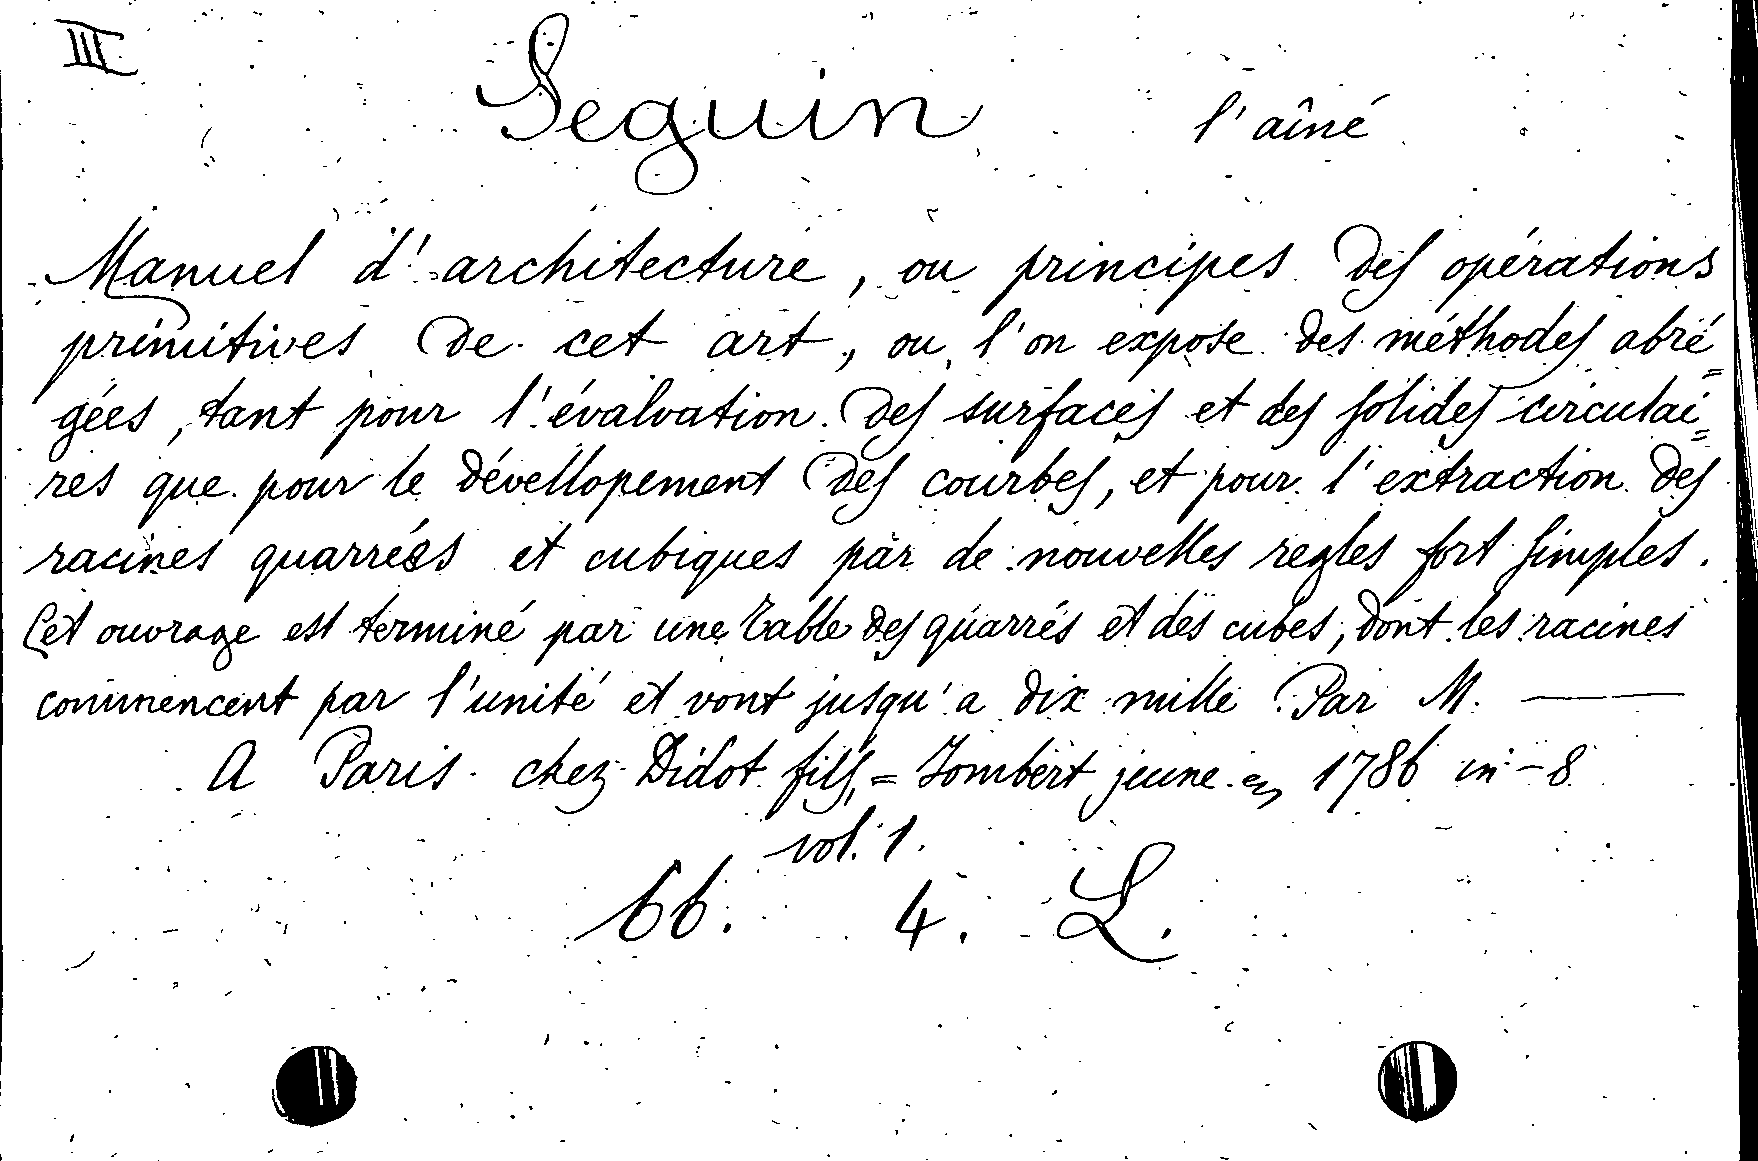 III
Seguin l'aîné
Manuel d'architecture, ou principes des opérations
primitives de cet art, ou l'on expose des méthodes abré=
gées, tant pour l'évalvation des surfaces et des solides circulai=
res que pour le dévellopement des courbes, et pour l'extraction des
racines quarrées et cubiques par de nouvelles regles fort simples.
Cet ouvrage est terminé par une table des quarrés et des cubes, dont les racines
commencent par l'unité et vont jusqu'a dix mille Par M. ———
A Paris chez Didot fils, = Jombert jeune 1786 in-8
vol. 1.
66. 4. L.